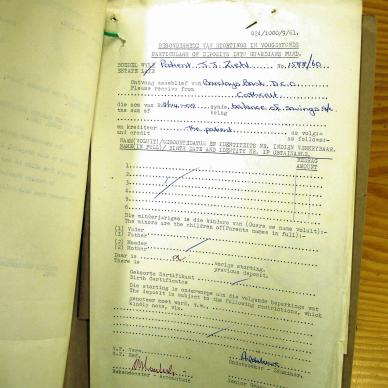 J24/1000/9/61.
BESONDERHEDE VAN STORTINGS IN VOOGDYFONDS
PARTICULARS OF DEPOSITS INTO GUARDIANS FUND.
BOEDEL WYLE Patient J.J. No. 1588/60
ESTATE LATE
Ontvang asseblief van Barclays Bank D.C.O.
Please receive from
die som van R synde balance of Savings A/c
the sum of being
en krediteer the patient. as volg:-
and credit as follows:-
NAAM(VOLUIT)/GEBOORTEDATUM EN IDENTITEITS NR. INDIEN VERKRYGBAAR.
NAME(IN FULL)/ BIRTH DATE AND IDENTITY NR. IF OBTAINABLE.
BEDRAG
AMOUNT
1.
2.
3.
4.
5.
6.
Die minderjariges is die kinders van (Ouers se name voluit):-
The minors are the children of(Parents names in full):-
(1) Vader
(1) Father
(2) Moeder
(2) Mother
Daar is vorige storting.
There is previous deposit.
Geboorte Sertifikant
Birth Certificates
Die storting is onderworpe aan die volgende beperkings wat
The deposit is subject to the following restrictions, which
genoteer moet word. d.w.s.
kindly note, viz.